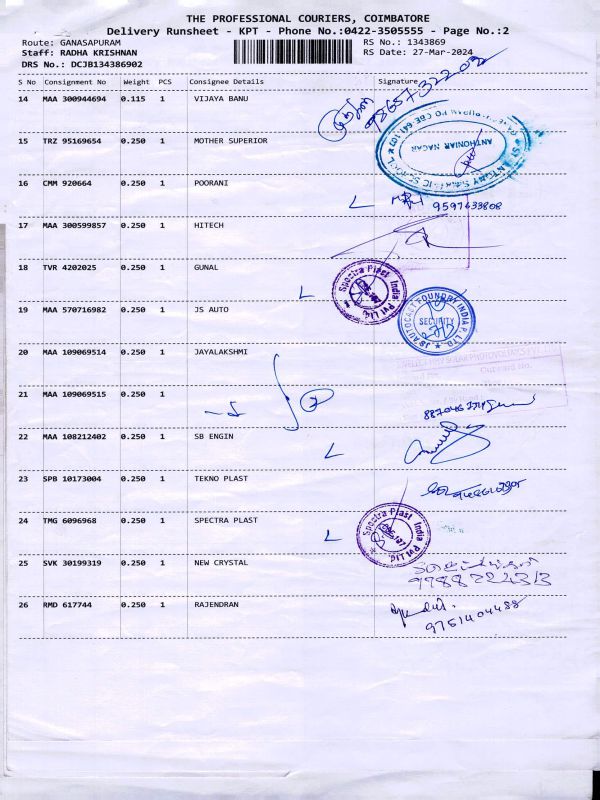 THE PROFESSIONAL COURIERS, COIMBATORE
Delivery Runsheet - KPT - Phone No.:0422-3505555 - Page No.:2
Route: GANASAPURAM RS No.: 1343869
Staff: RADHA KRISHNAN RS Date: 27-Mar-2024
DRS No.: DCJB134386902
S No Consignment No Weight PCS Consignee Details Signature
14 MAA 300944694 0.115 1 VIJAYA BANU
15 TRZ 95169654 0.250 1 MOTHER SUPERIOR
ANTHONIAR NAGAR
16 CMM 920664 0.250 1 POORANI
9597633808
17 MAA 300599857 0.250 1 HITECH
18 TVR 4202025 0.250 1 GUNAL
Spectra Plast India Pvt Ltd.
19 MAA 570716982 0.250 1 JS AUTO
JS AUTOCAST FOUNDRY INDIA P LTD
SECURITY
20 MAA 109069514 0.250 1 JAYALAKSHMI
21 MAA 109069515 0.250 1
22 MAA 108212402 0.250 1 SB ENGIN
23 SPB 10173004 0.250 1 TEKNO PLAST
24 TMG 6096968 0.250 1 SPECTRA PLAST
Spectra Plast India Pvt Ltd.
25 SVK 30199319 0.250 1 NEW CRYSTAL
9788224313
26 RMD 617744 0.250 1 RAJENDRAN
9751404488